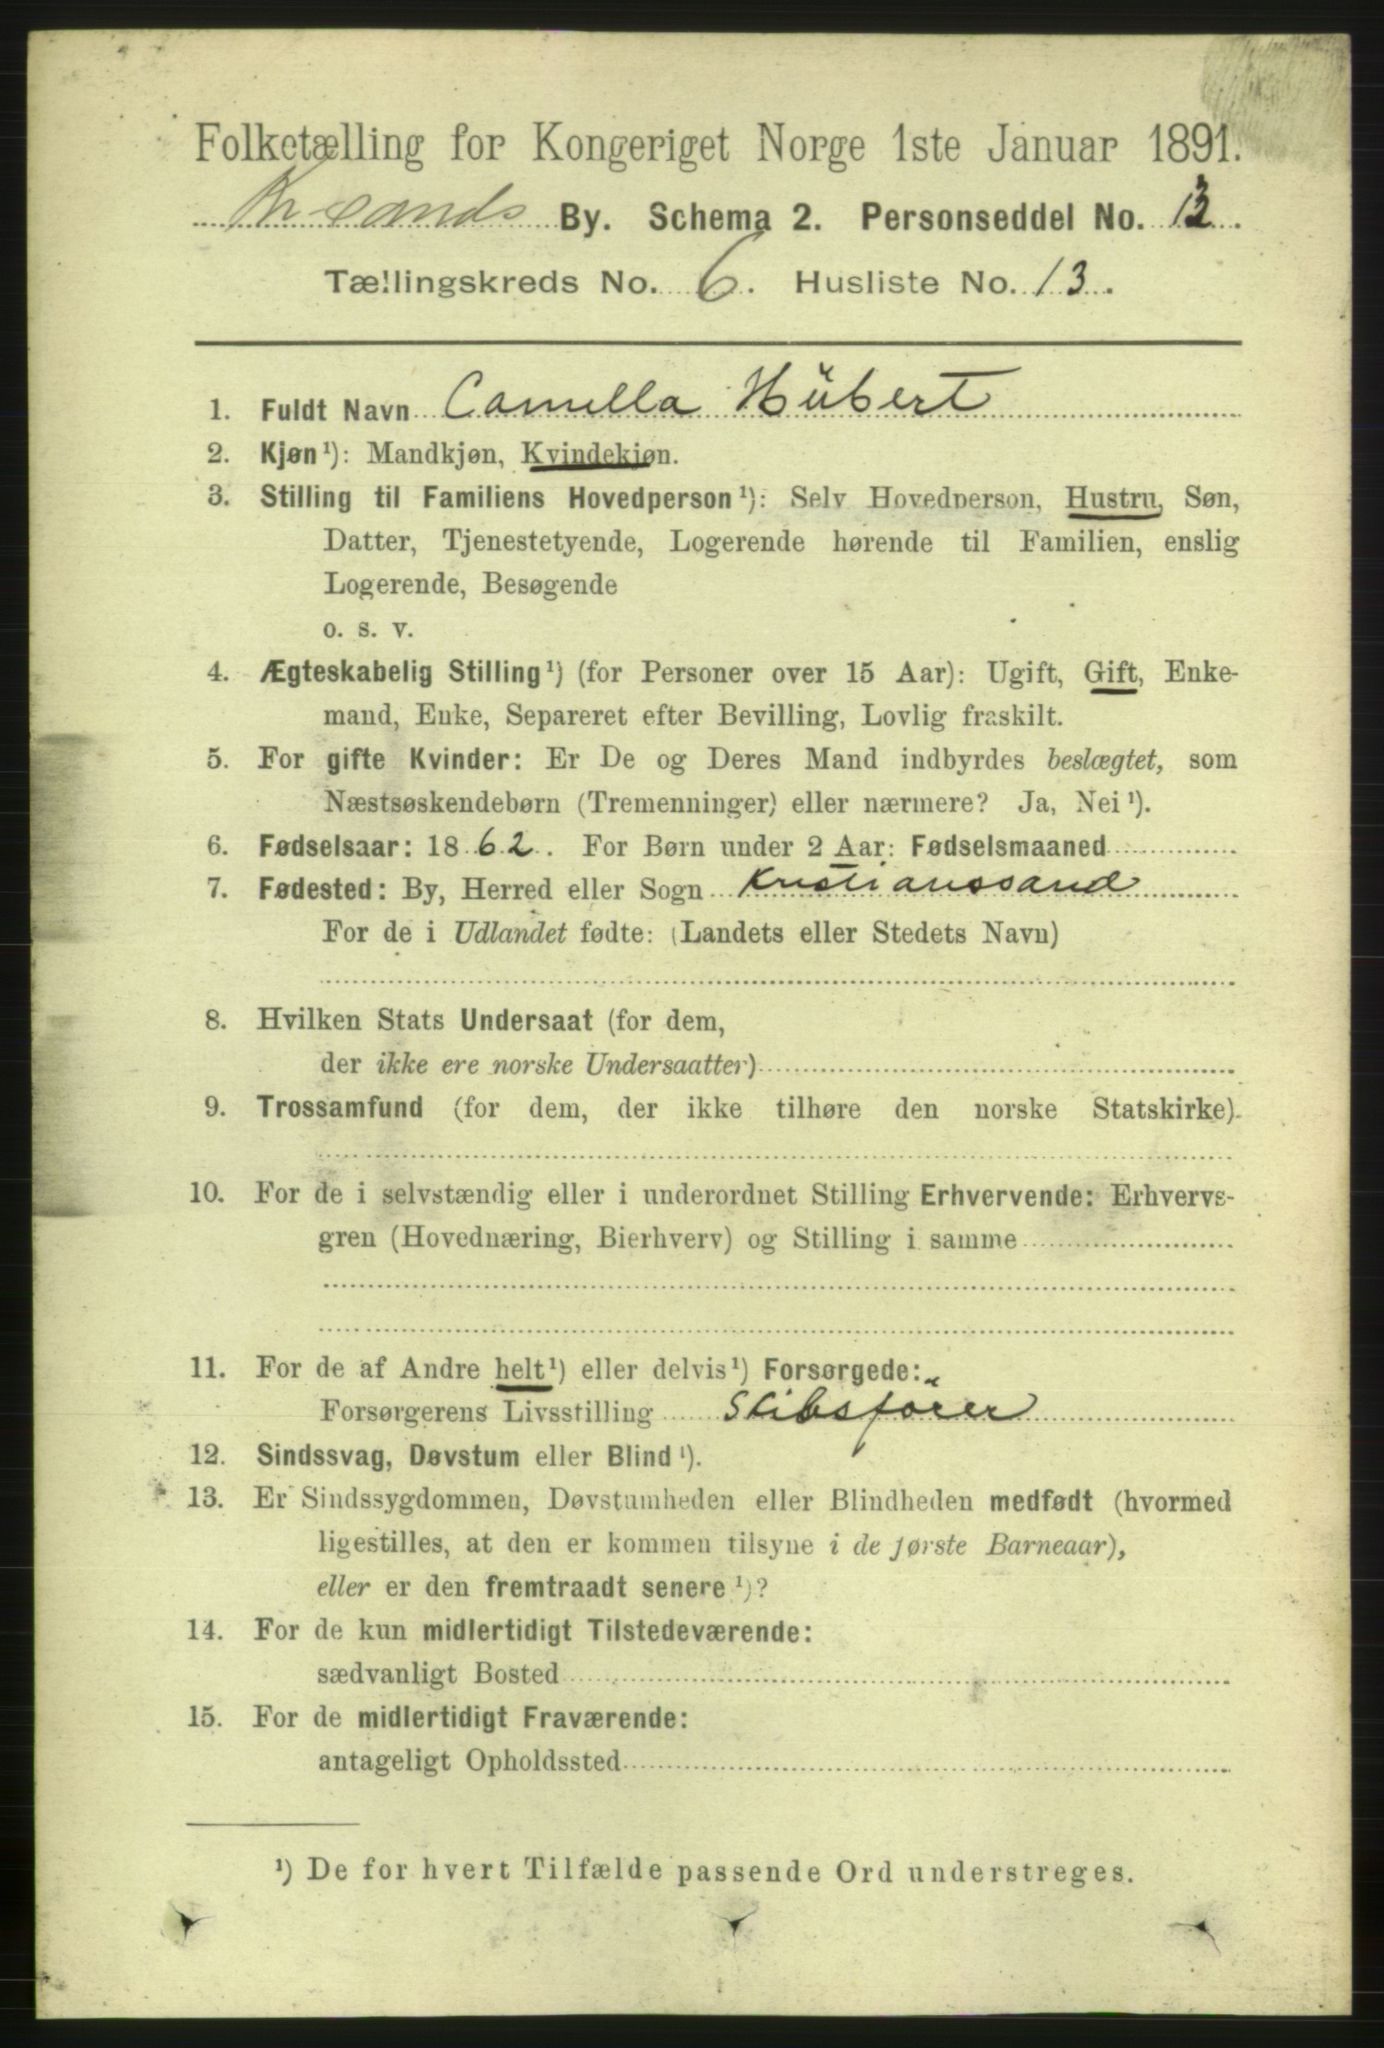 Folketælling for Kongeriget Norge 1ste Januar 1891.
Kr-sands By. Schema 2. Personseddel No. 13.
Tællingskreds No. 6. Husliste No. 13.
1. Fuldt Navn Camilla Hübert
2. Kjøn¹): Mandkjøn, Kvindekjøn.
3. Stilling til Familiens Hovedperson¹): Selv Hovedperson, Hustru, Søn,
Datter, Tjenestetyende, Logerende hørende til Familien, enslig
Logerende, Besøgende
o. s. v.
4. Ægteskabelig Stilling¹) (for Personer over 15 Aar): Ugift, Gift, Enke-
mand, Enke, Separeret efter Bevilling, Lovlig fraskilt.
5. For gifte Kvinder: Er De og Deres Mand indbyrdes beslægtet, som
Næstsøskendebørn (Tremenninger) eller nærmere? Ja, Nei¹).
6. Fødselsaar: 1862. For Børn under 2 Aar: Fødselsmaaned
7. Fødested: By, Herred eller Sogn Kristianssand
For de i Udlandet fødte: (Landets eller Stedets Navn)
8. Hvilken Stats Undersaat (for dem,
der ikke ere norske Undersaatter)
9. Trossamfund (for dem, der ikke tilhøre den norske Statskirke).
10. For de i selvstændig eller i underordnet Stilling Erhvervende: Erhvervs-
gren (Hovednæring, Bierhverv) og Stilling i samme
11. For de af Andre helt¹) eller delvis¹) Forsørgede:
Forsørgerens Livsstilling Skibsfører
12. Sindssvag, Døvstum eller Blind¹).
13. Er Sindssygdommen, Døvstumheden eller Blindheden medfødt (hvormed
ligestilles, at den er kommen tilsyne i de første Barneaar),
eller er den fremtraadt senere¹)?
14. For de kun midlertidigt Tilstedeværende:
sædvanligt Bosted
15. For de midlertidigt Fraværende:
antageligt Opholdssted
¹) De for hvert Tilfælde passende Ord understreges.